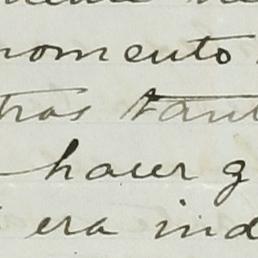 momento
tras tant
hacer q
era ind